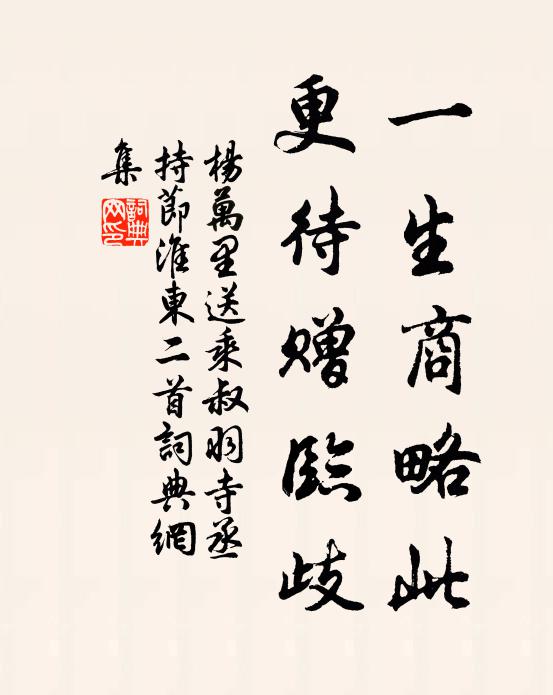 一生商略此
更待贈臨歧
楊萬里送乘叔羽寺丞
持節淮東二首詞典網
集
詞典
网